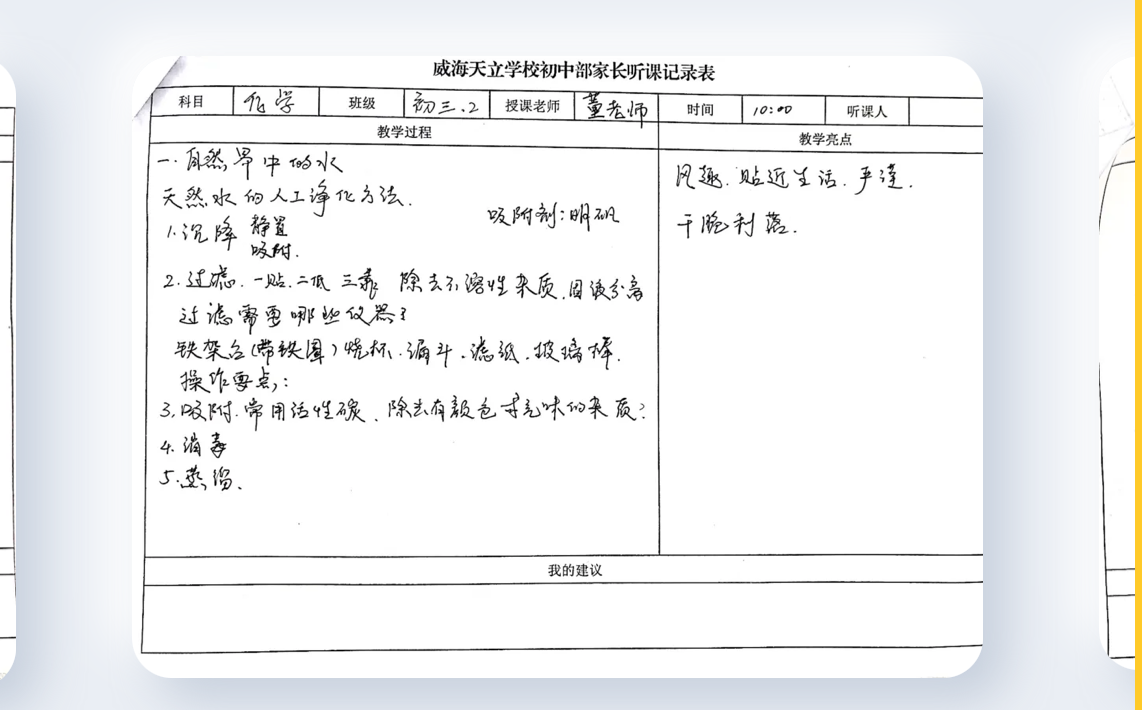 威海天立学校初中部家长听课记录表
科目 化学 班级 初三.2 授课老师 董老师 时间 10:00 听课人
教学过程 教学亮点
一.自然界中的水
天然水的人工净化方法.
1.沉降 静置
吸附.
吸附剂:明矾
2.过滤.一贴.二低 三靠 除去不溶性杂质.固液分离
过滤需要哪些仪器?
铁架台(带铁圈)烧杯.漏斗.滤纸.玻璃棒.
操作要点:
3.吸附.常用活性碳、除去有颜色或气味的杂质?
4.消毒
5.蒸馏.
风趣.贴近生活.严谨.
干脆利落.
我的建议